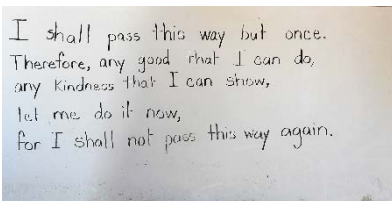 I shall pass this way but once.
Therefore, any good that I can do,
any kindness that I can show,
let me do it now,
for I shall not pass this way again.